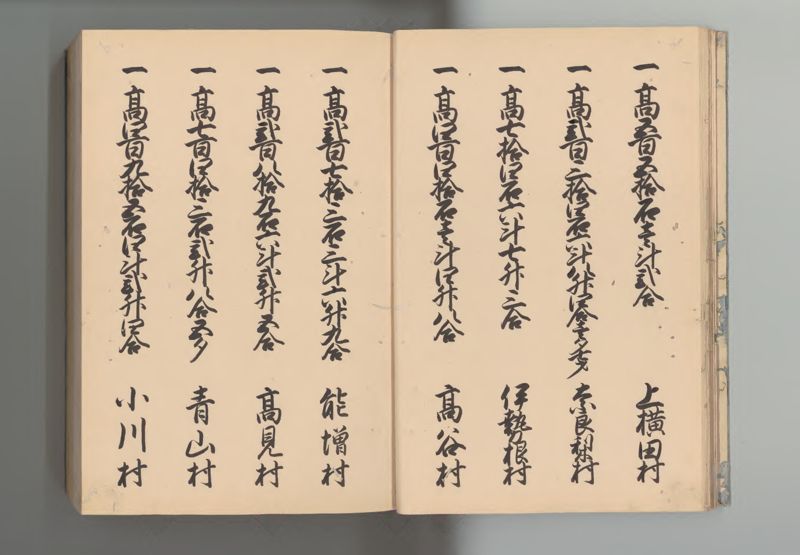 一 高五百五拾石壱斗弐合 上横田村
一 高弐百三拾四石六斗八升四合壱夕 奈良梨村
一 高七拾四石六斗七升三合 伊勢根村
一 高四百四拾石壱斗四升八合 高谷村
一 高弐百七拾三石三斗六升九合 能増村
一 高弐百八拾九石六斗弐升五合 高見村
一 高七百四拾三石弐升八合五夕 青山村
一 高四百九拾五石四斗弐升四合 小川村